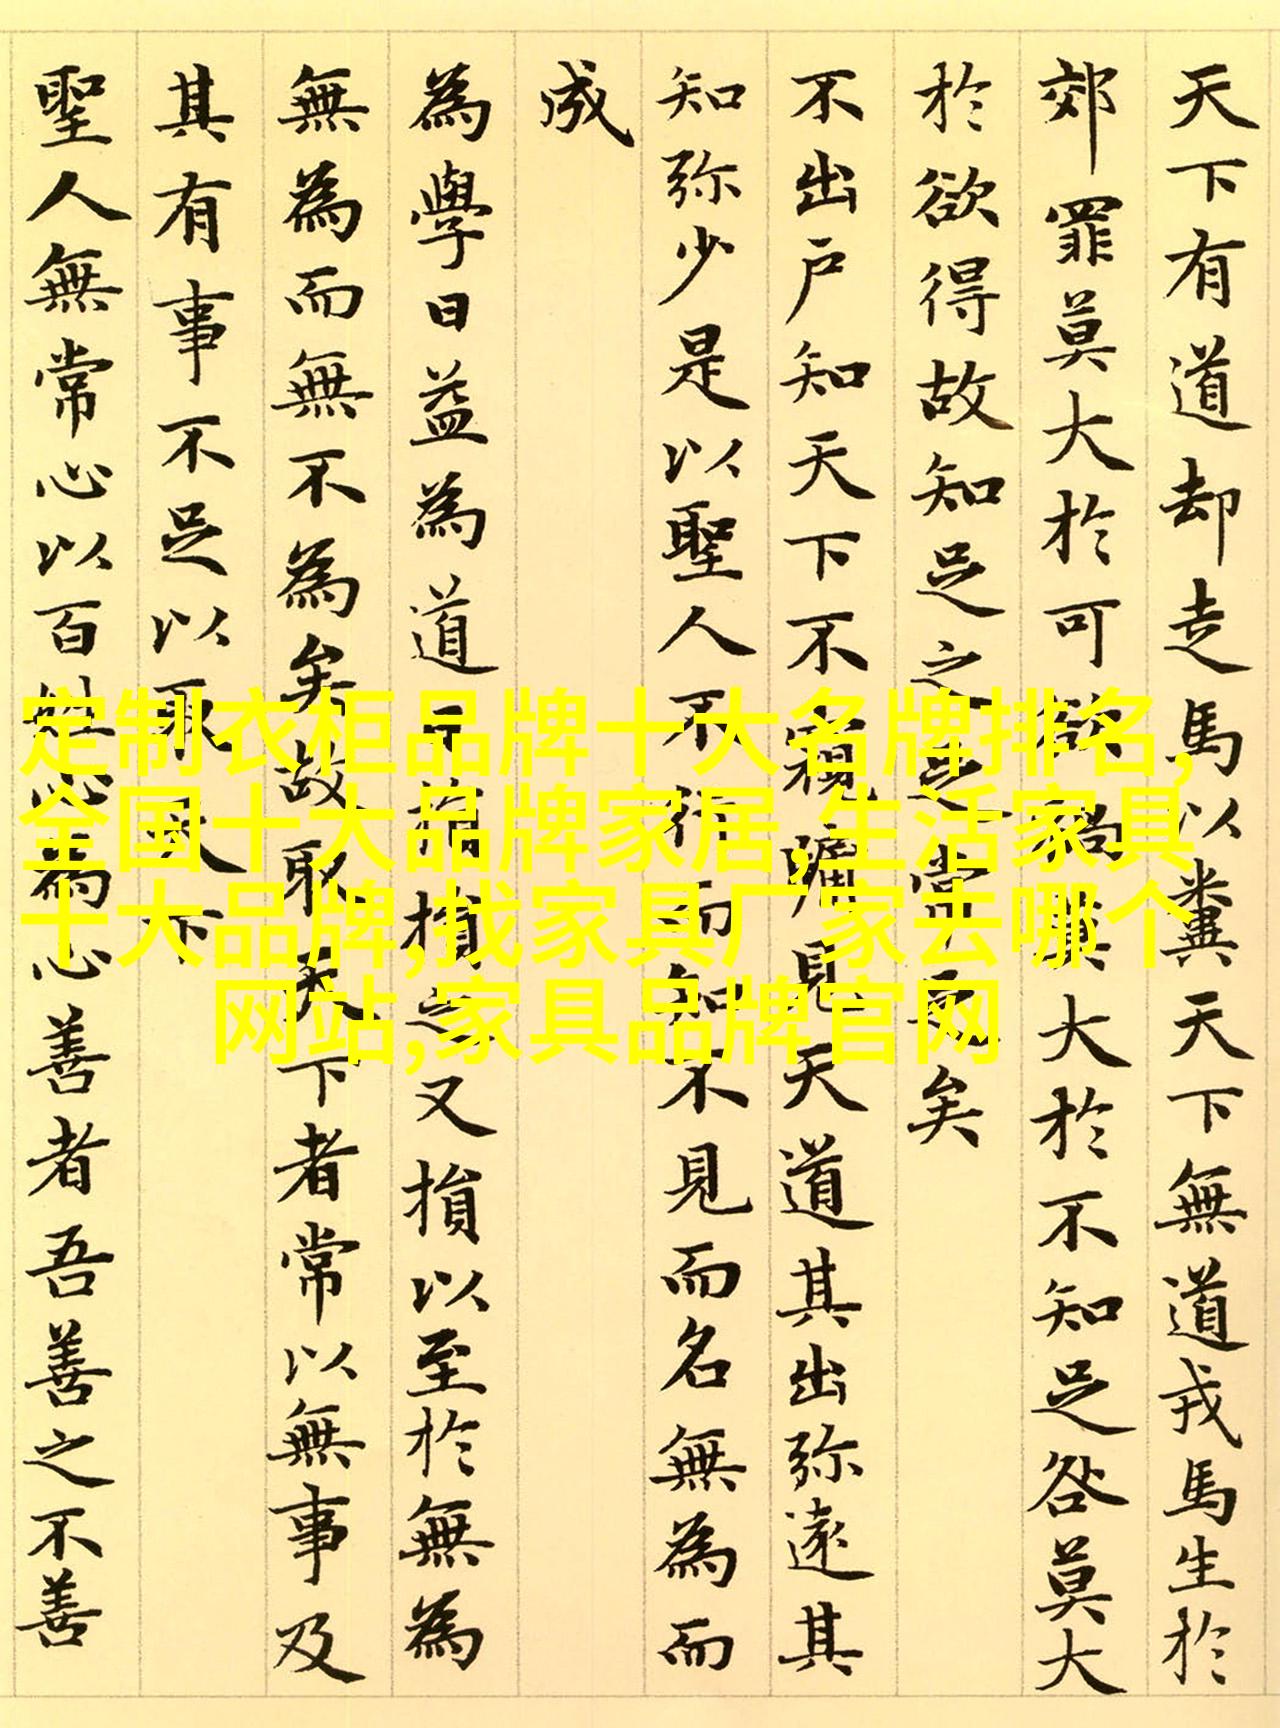 天下有道却走馬以糞天下無道戎馬生於
郊罪莫大於可欲禍莫大於不知足咎莫大
於欲得故知足之足常足矣
不出戶知天下不窺牖見天道其出弥遠其
知弥少是以聖人不行而知不見而名無為而
成
為學日益為道日損損之又損以至於無為
無為而無不為矣故取天下者常以無事及
其有事不足以取天下
聖人無常心以百姓心為心善者吾善之不善
定制衣柜品牌十大名牌排名,
全国十大品牌家居,生活家具
十大品牌,找家具厂家去哪个
网站,家具品牌官网